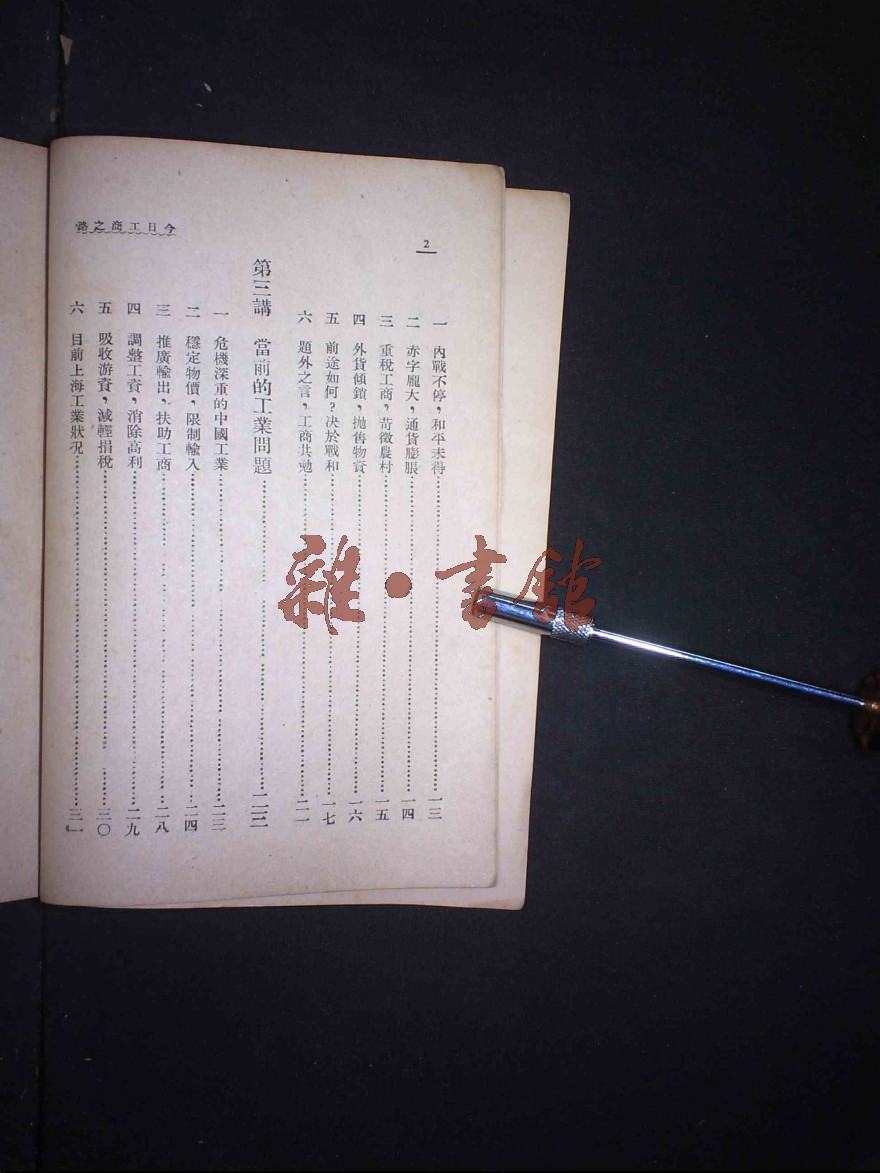 今日工商之路
2
一 內戰不停，和平未得……一三
二 赤字龐大，通貨膨脹……一四
三 重稅工商，苛徵農村……一五
四 外貨傾銷，拋售物資……一六
五 前途如何？決於戰和……一七
六 題外之言，工商共勉……二一
第三講 當前的工業問題……二三
一 危機深重的中國工業……二三
二 穩定物價，限制輸入……二四
三 推廣輸出，扶助工商……二八
四 調整工資，消除高利……二九
五 吸收游資，減輕捐稅……三〇
六 目前上海工業狀况……三一
雜·書館